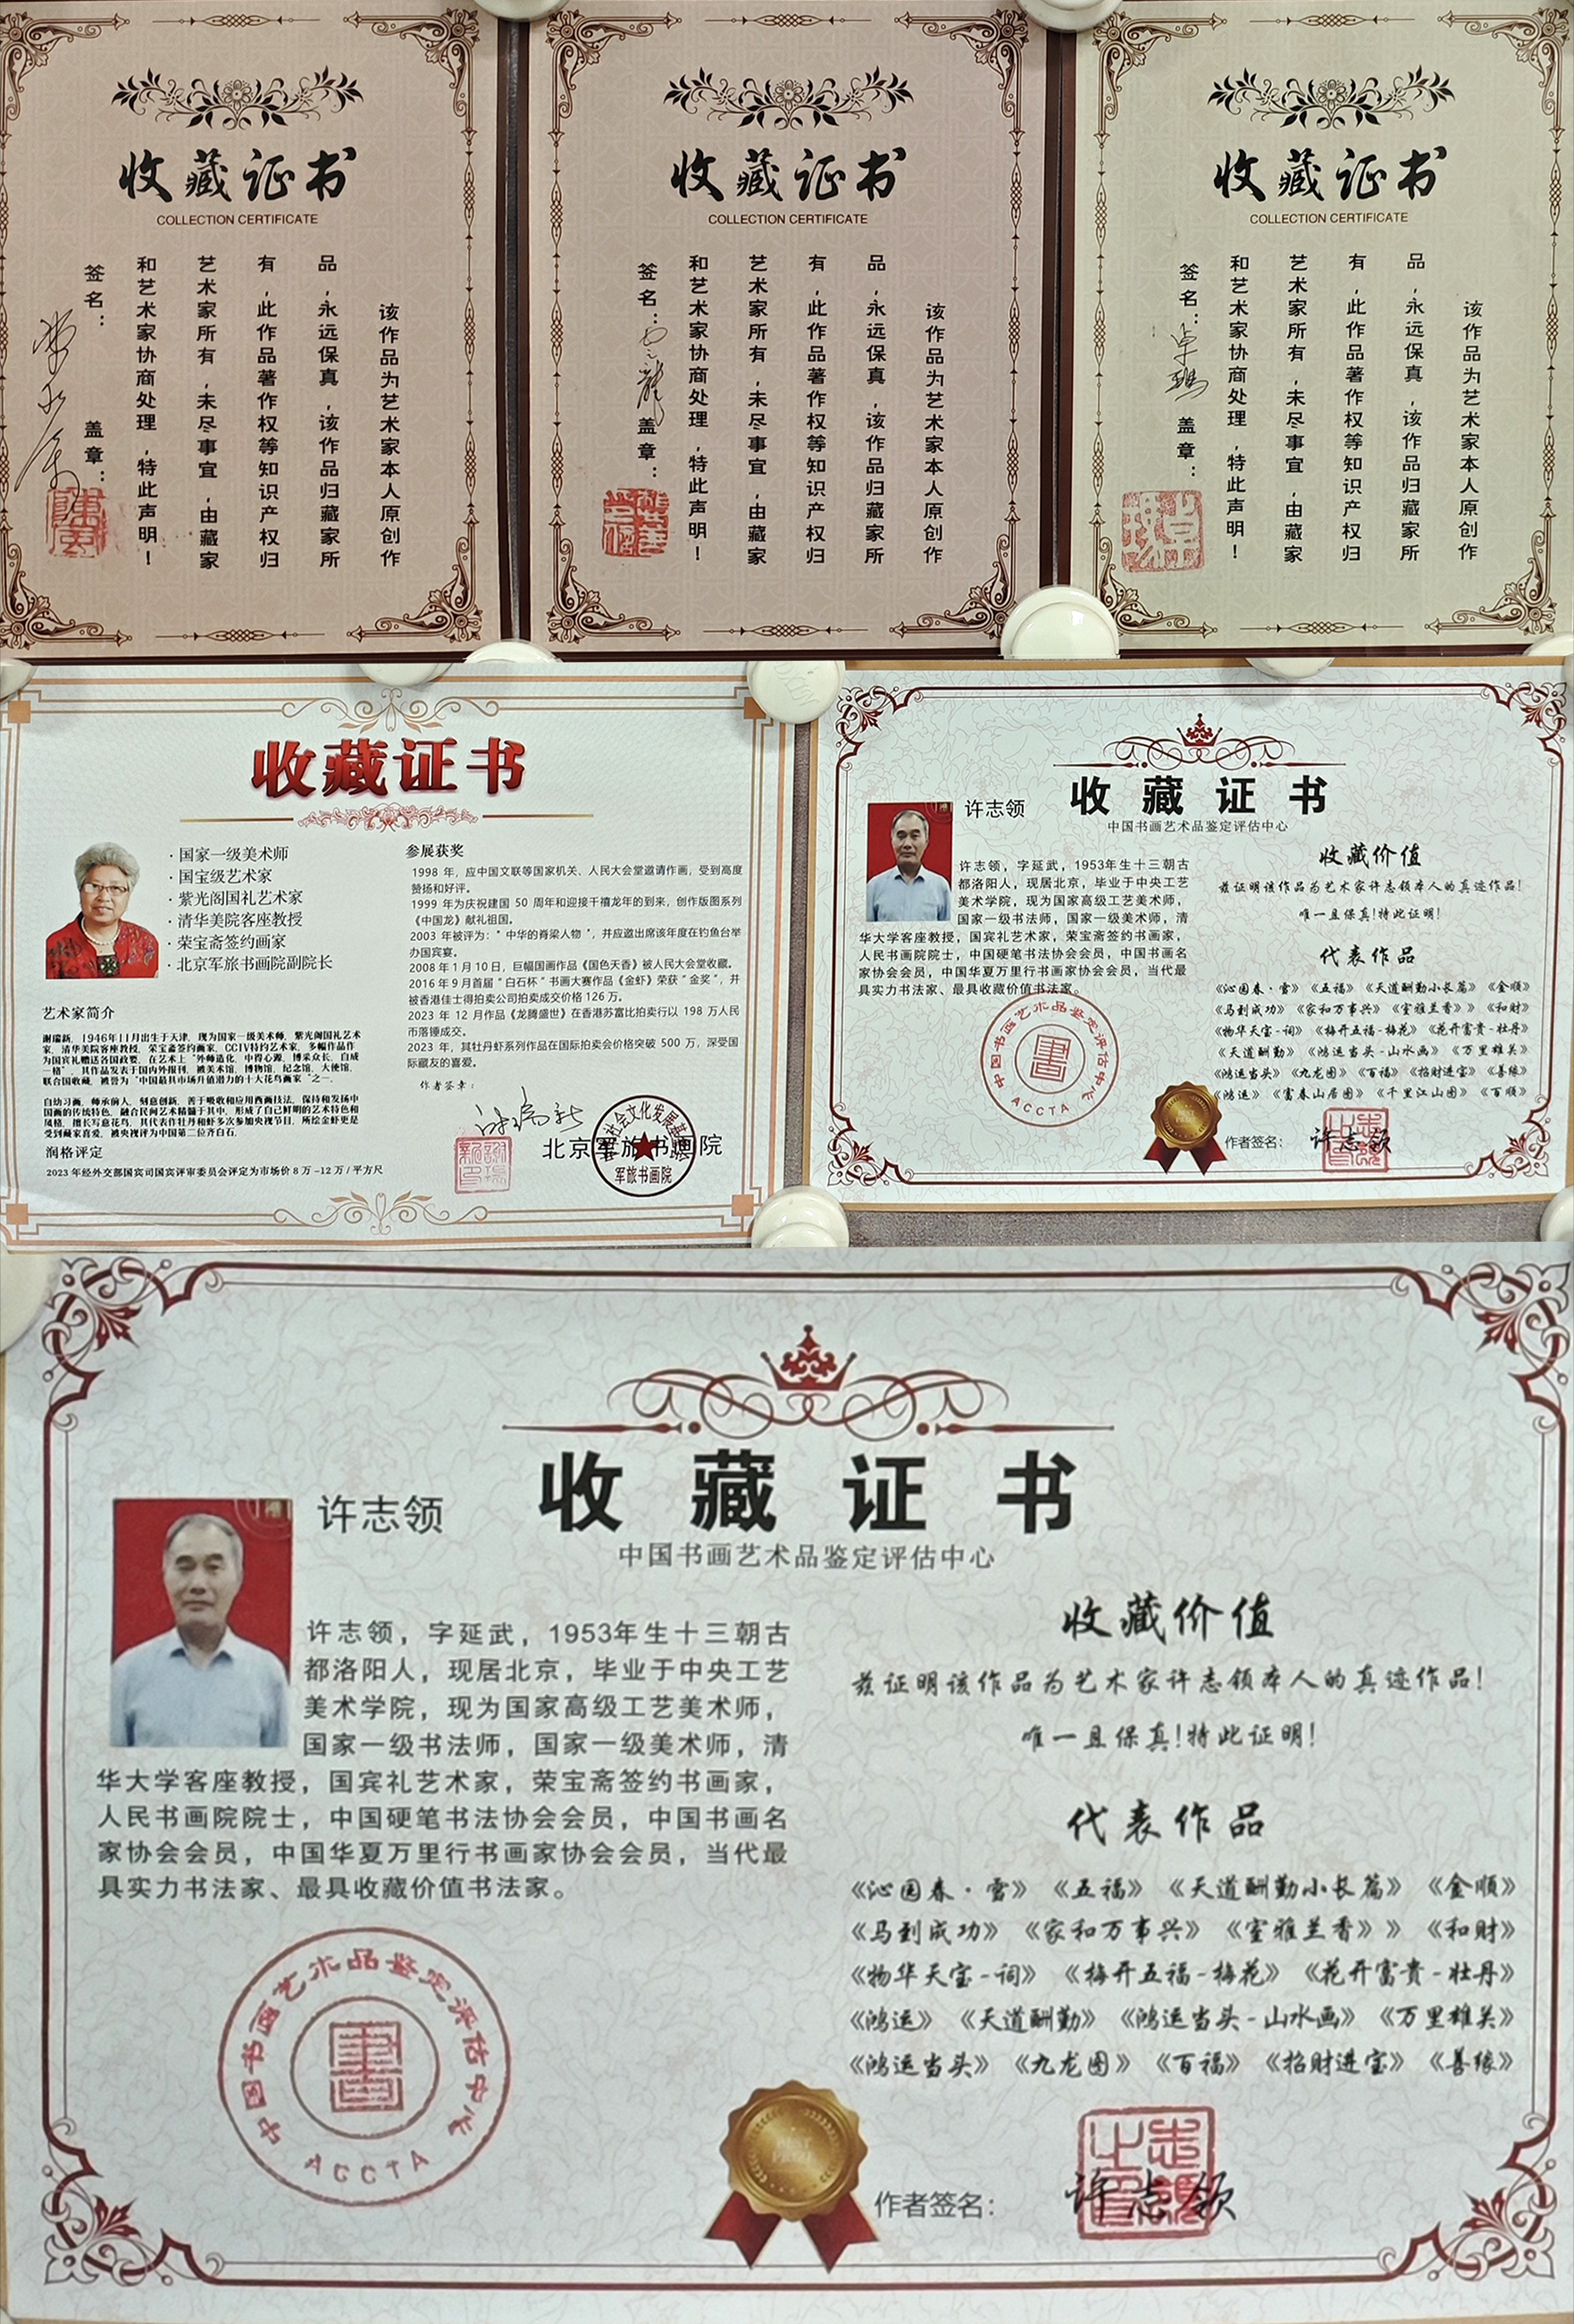 收藏证书
COLLECTION CERTIFICATE
该作品为艺术家本人原创作
品，永远保真，该作品归藏家所
有，此作品著作权等知识产权归
艺术家所有，未尽事宜，由藏家
和艺术家协商处理，特此声明！
签名：
盖章：
收藏证书
COLLECTION CERTIFICATE
该作品为艺术家本人原创作
品，永远保真，该作品归藏家所
有，此作品著作权等知识产权归
艺术家所有，未尽事宜，由藏家
和艺术家协商处理，特此声明！
签名：
盖章：
收藏证书
COLLECTION CERTIFICATE
该作品为艺术家本人原创作
品，永远保真，该作品归藏家所
有，此作品著作权等知识产权归
艺术家所有，未尽事宜，由藏家
和艺术家协商处理，特此声明！
签名：卓玛
盖章：
收藏证书
·国家一级美术师
·国宝级艺术家
·紫光阁国礼艺术家
·清华美院客座教授
·荣宝斋签约画家
·北京军旅书画院副院长
艺术家简介
谢瑞新，1946年11月出生于天津，现为国家一级美术师，紫光阁国礼艺术
家，清华美院客座教授，荣宝斋签约画家，CCTV特约艺术家，多幅作品作
为国宾礼赠送各国政要，在艺术上“外师造化，中得心源，博采众长，自成
一格”，其作品发表于国内外报刊，被美术馆，博物馆，纪念馆，大使馆，
联合国收藏，被誉为“中国最具市场升值潜力的十大花鸟画家”之一。
自幼习画，师承前人，刻意创新，善于吸收和应用西画技法，保持和发扬中
国画的传统特色，融合民间艺术精髓于其中，形成了自己鲜明的艺术特色和
风格，擅长写意花鸟，其代表作牡丹和虾多次参加央视节目，所绘金虾更是
受到藏家喜爱，被央视评为中国第二位齐白石。
润格评定
2023年经外交部国宾司国宾评审委员会评定为市场价8万-12万/平方尺
参展获奖
1998 年，应中国文联等国家机关、人民大会堂邀请作画，受到高度
赞扬和好评。
1999 年为庆祝建国 50 周年和迎接千禧龙年的到来，创作版图系列
《中国龙》献礼祖国。
2003 年被评为：“中华的脊梁人物”，并应邀出席该年度在钓鱼台举
办国宾宴。
2008 年 1 月 10 日，巨幅国画作品《国色天香》被人民大会堂收藏。
2016 年 9 月首届“白石杯”书画大赛作品《金虾》荣获“金奖”，并
被香港佳士得拍卖公司拍卖成交价格 126 万。
2023 年 12 月作品《龙腾盛世》在香港苏富比拍卖行以 198 万人民
币落锤成交。
2023 年，其牡丹虾系列作品在国际拍卖会价格突破 500 万，深受国
际藏友的喜爱。
作者签章：
谢瑞新
北京军旅书画院
社会文化发展基
军旅书画院
收藏证书
中国书画艺术品鉴定评估中心
许志领
许志领，字延武，1953年生十三朝古
都洛阳人，现居北京，毕业于中央工艺
美术学院，现为国家高级工艺美术师，
国家一级书法师，国家一级美术师，清
华大学客座教授，国宾礼艺术家，荣宝斋签约书画家，
人民书画院院士，中国硬笔书法协会会员，中国书画名
家协会会员，中国华夏万里行书画家协会会员，当代最
具实力书法家、最具收藏价值书法家。
中国书画艺术品鉴定评估中心
書
ACCTA
收藏价值
兹证明该作品为艺术家许志领本人的真迹作品！
唯一且保真！特此证明！
代表作品
《沁园春·雪》《五福》《天道酬勤小长篇》《金顺》
《马到成功》《家和万事兴》《室雅兰香》》《和财》
《物华天宝-词》《梅开五福-梅花》《花开富贵-牡丹》
《天道酬勤》《鸿运当头-山水画》《万里雄关》
《鸿运当头》《九龙图》《百福》《招财进宝》《善缘》
《鸿运》《富春山居图》《千里江山图》《百顺》
作者签名：
许志领
收藏证书
中国书画艺术品鉴定评估中心
许志领
许志领，字延武，1953年生十三朝古
都洛阳人，现居北京，毕业于中央工艺
美术学院，现为国家高级工艺美术师，
国家一级书法师，国家一级美术师，清
华大学客座教授，国宾礼艺术家，荣宝斋签约书画家，
人民书画院院士，中国硬笔书法协会会员，中国书画名
家协会会员，中国华夏万里行书画家协会会员，当代最
具实力书法家、最具收藏价值书法家。
中国书画艺术品鉴定评估中心
書
ACCTA
收藏价值
兹证明该作品为艺术家许志领本人的真迹作品！
唯一且保真！特此证明！
代表作品
《沁园春·雪》《五福》《天道酬勤小长篇》《金顺》
《马到成功》《家和万事兴》《室雅兰香》》《和财》
《物华天宝-词》《梅开五福-梅花》《花开富贵-牡丹》
《鸿运》《天道酬勤》《鸿运当头-山水画》《万里雄关》
《鸿运当头》《九龙图》《百福》《招财进宝》《善缘》
作者签名：
许志领